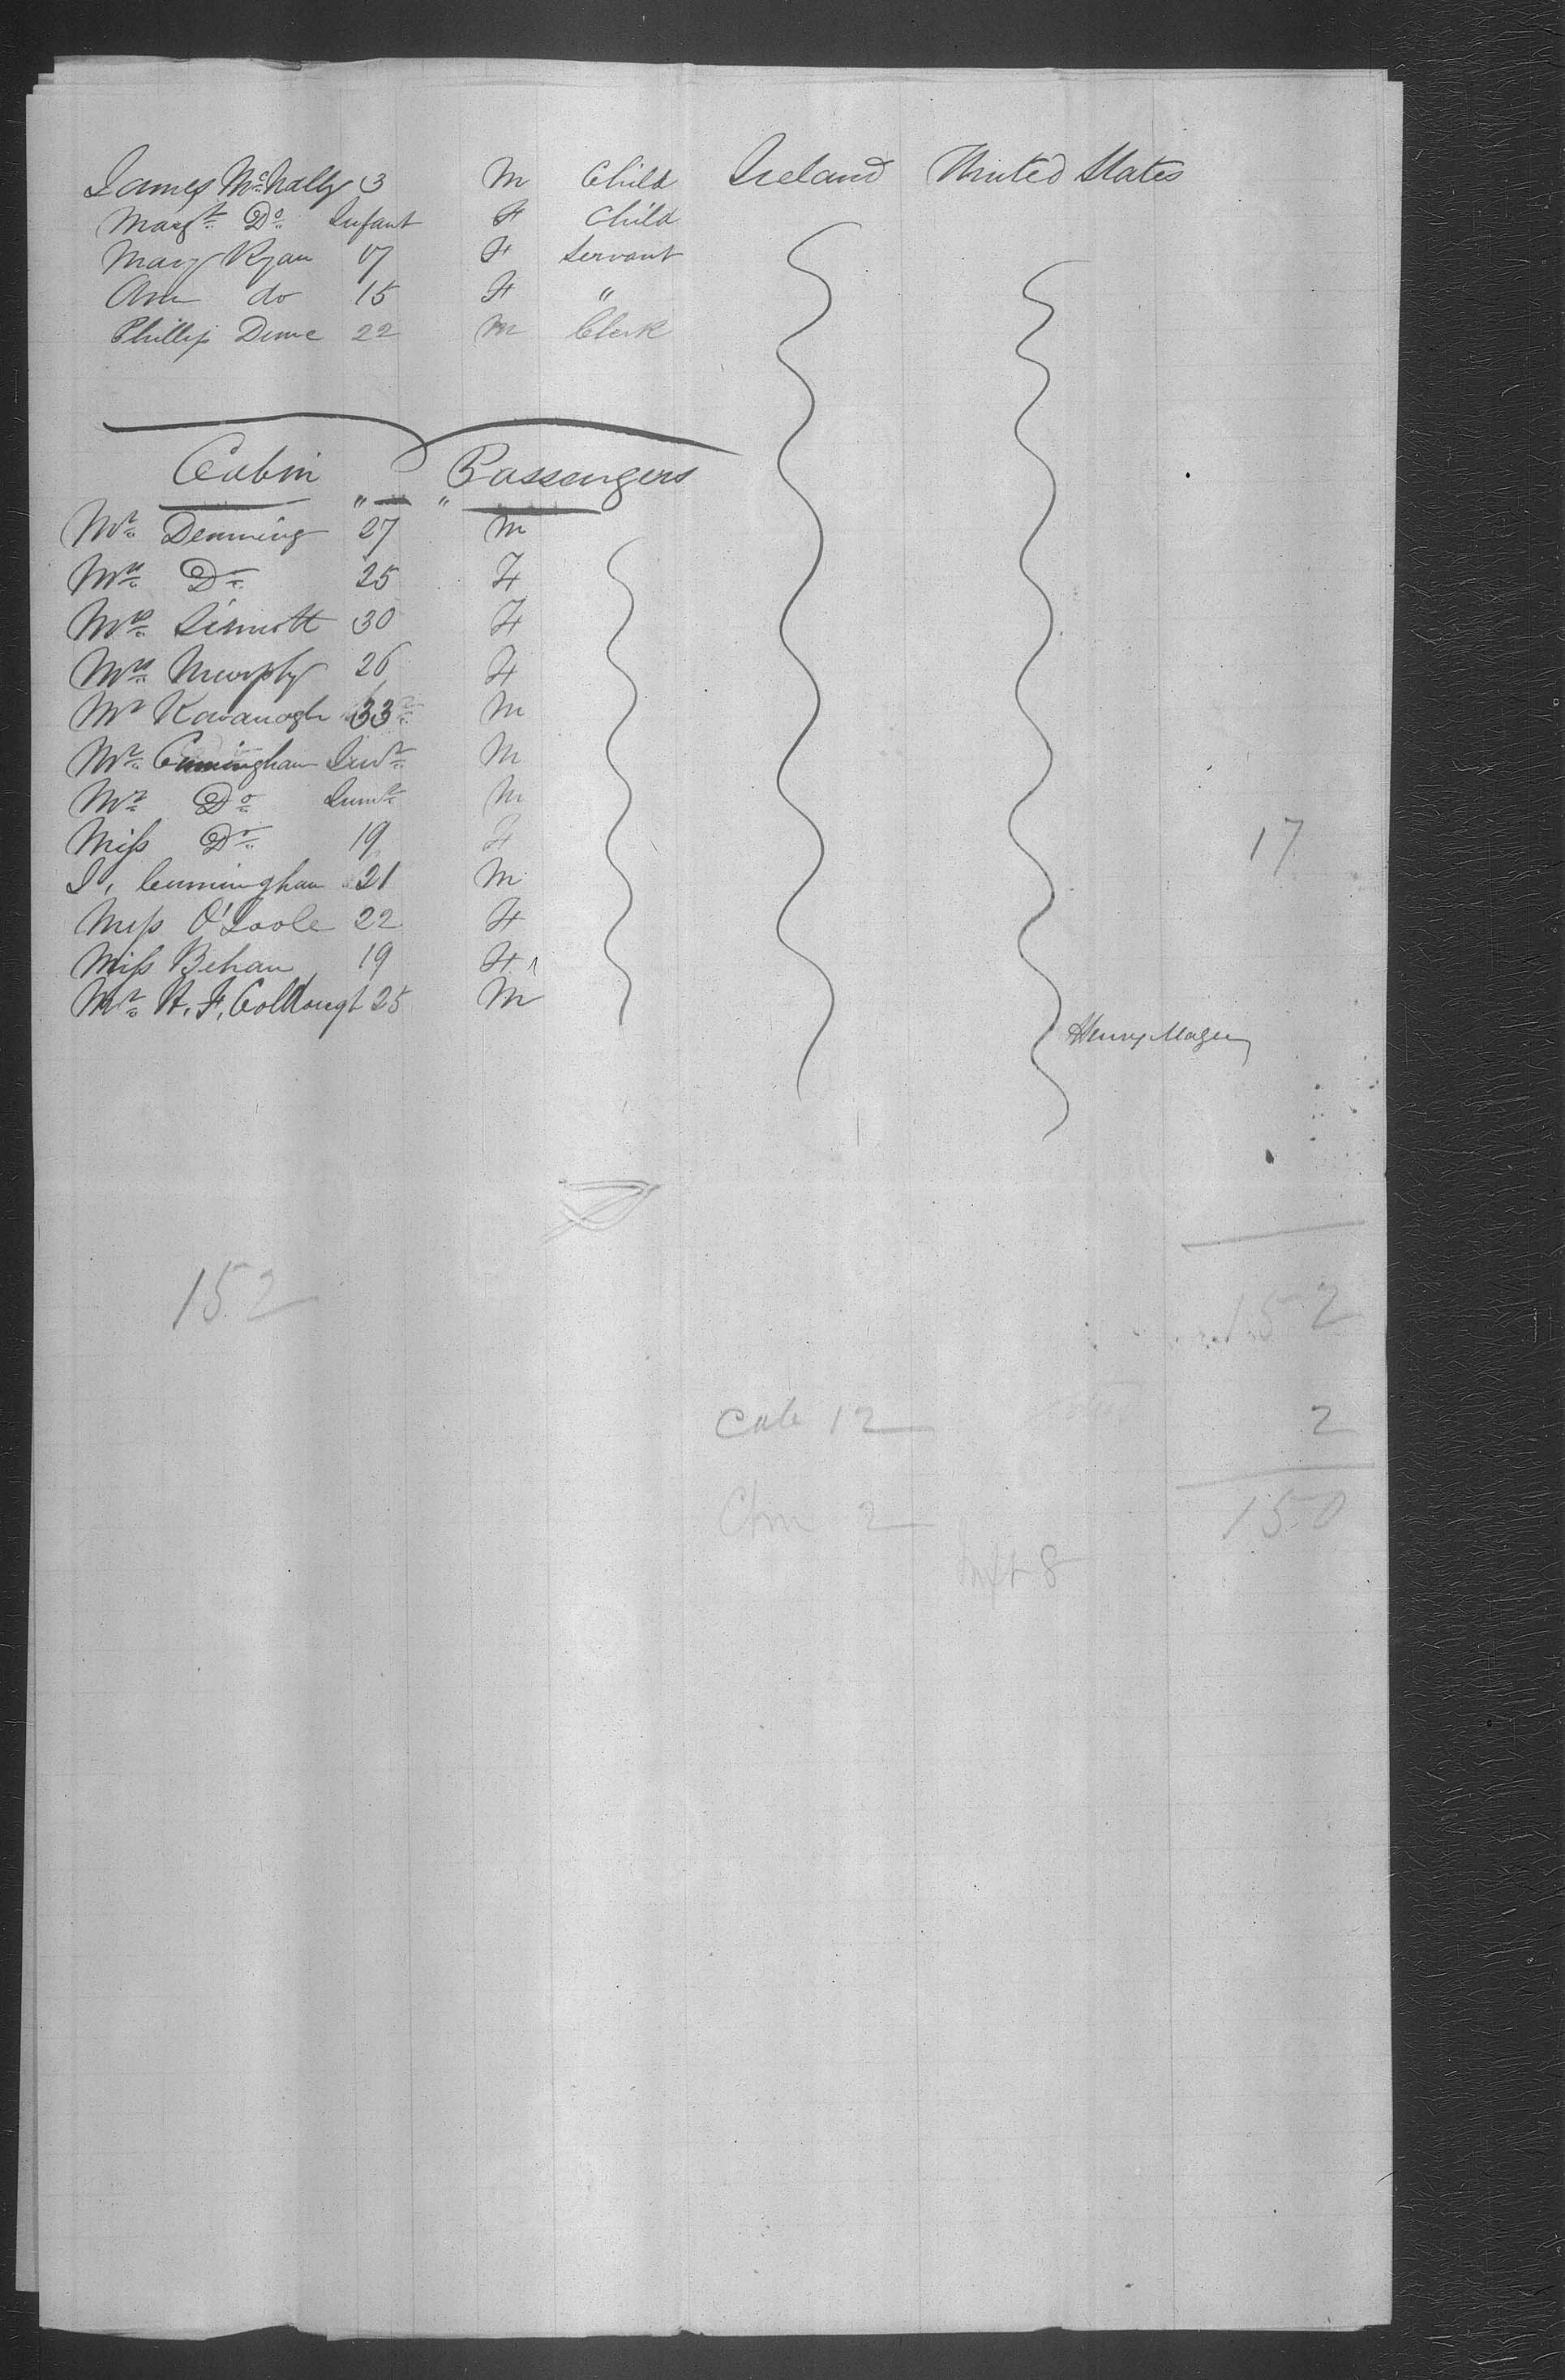 James McNally 3 M Child Ireland United States
Margt Do Infant F Child
Mary Ryan 17 F Servant
Ann do 15 F "
Phillip Dunne 22 M Clerk
Cabin " " Passengers
Mr Denning 27 M
Mrs Do 25 F
Mrs Sinnott 30 F
Mrs Murphy 26 F
Mr Kavanagh 33 M
Mr Cunningham Senr M
Mr Do Junr M
Miss Do 19 F
J. Cunningham 21 M
17
Miss O'Toole 22 F
Miss Behan 19 F
Mr H. F. 25 M
Henry Magee
152
152
Cab 12
2
Chn 2
150
Inft 8